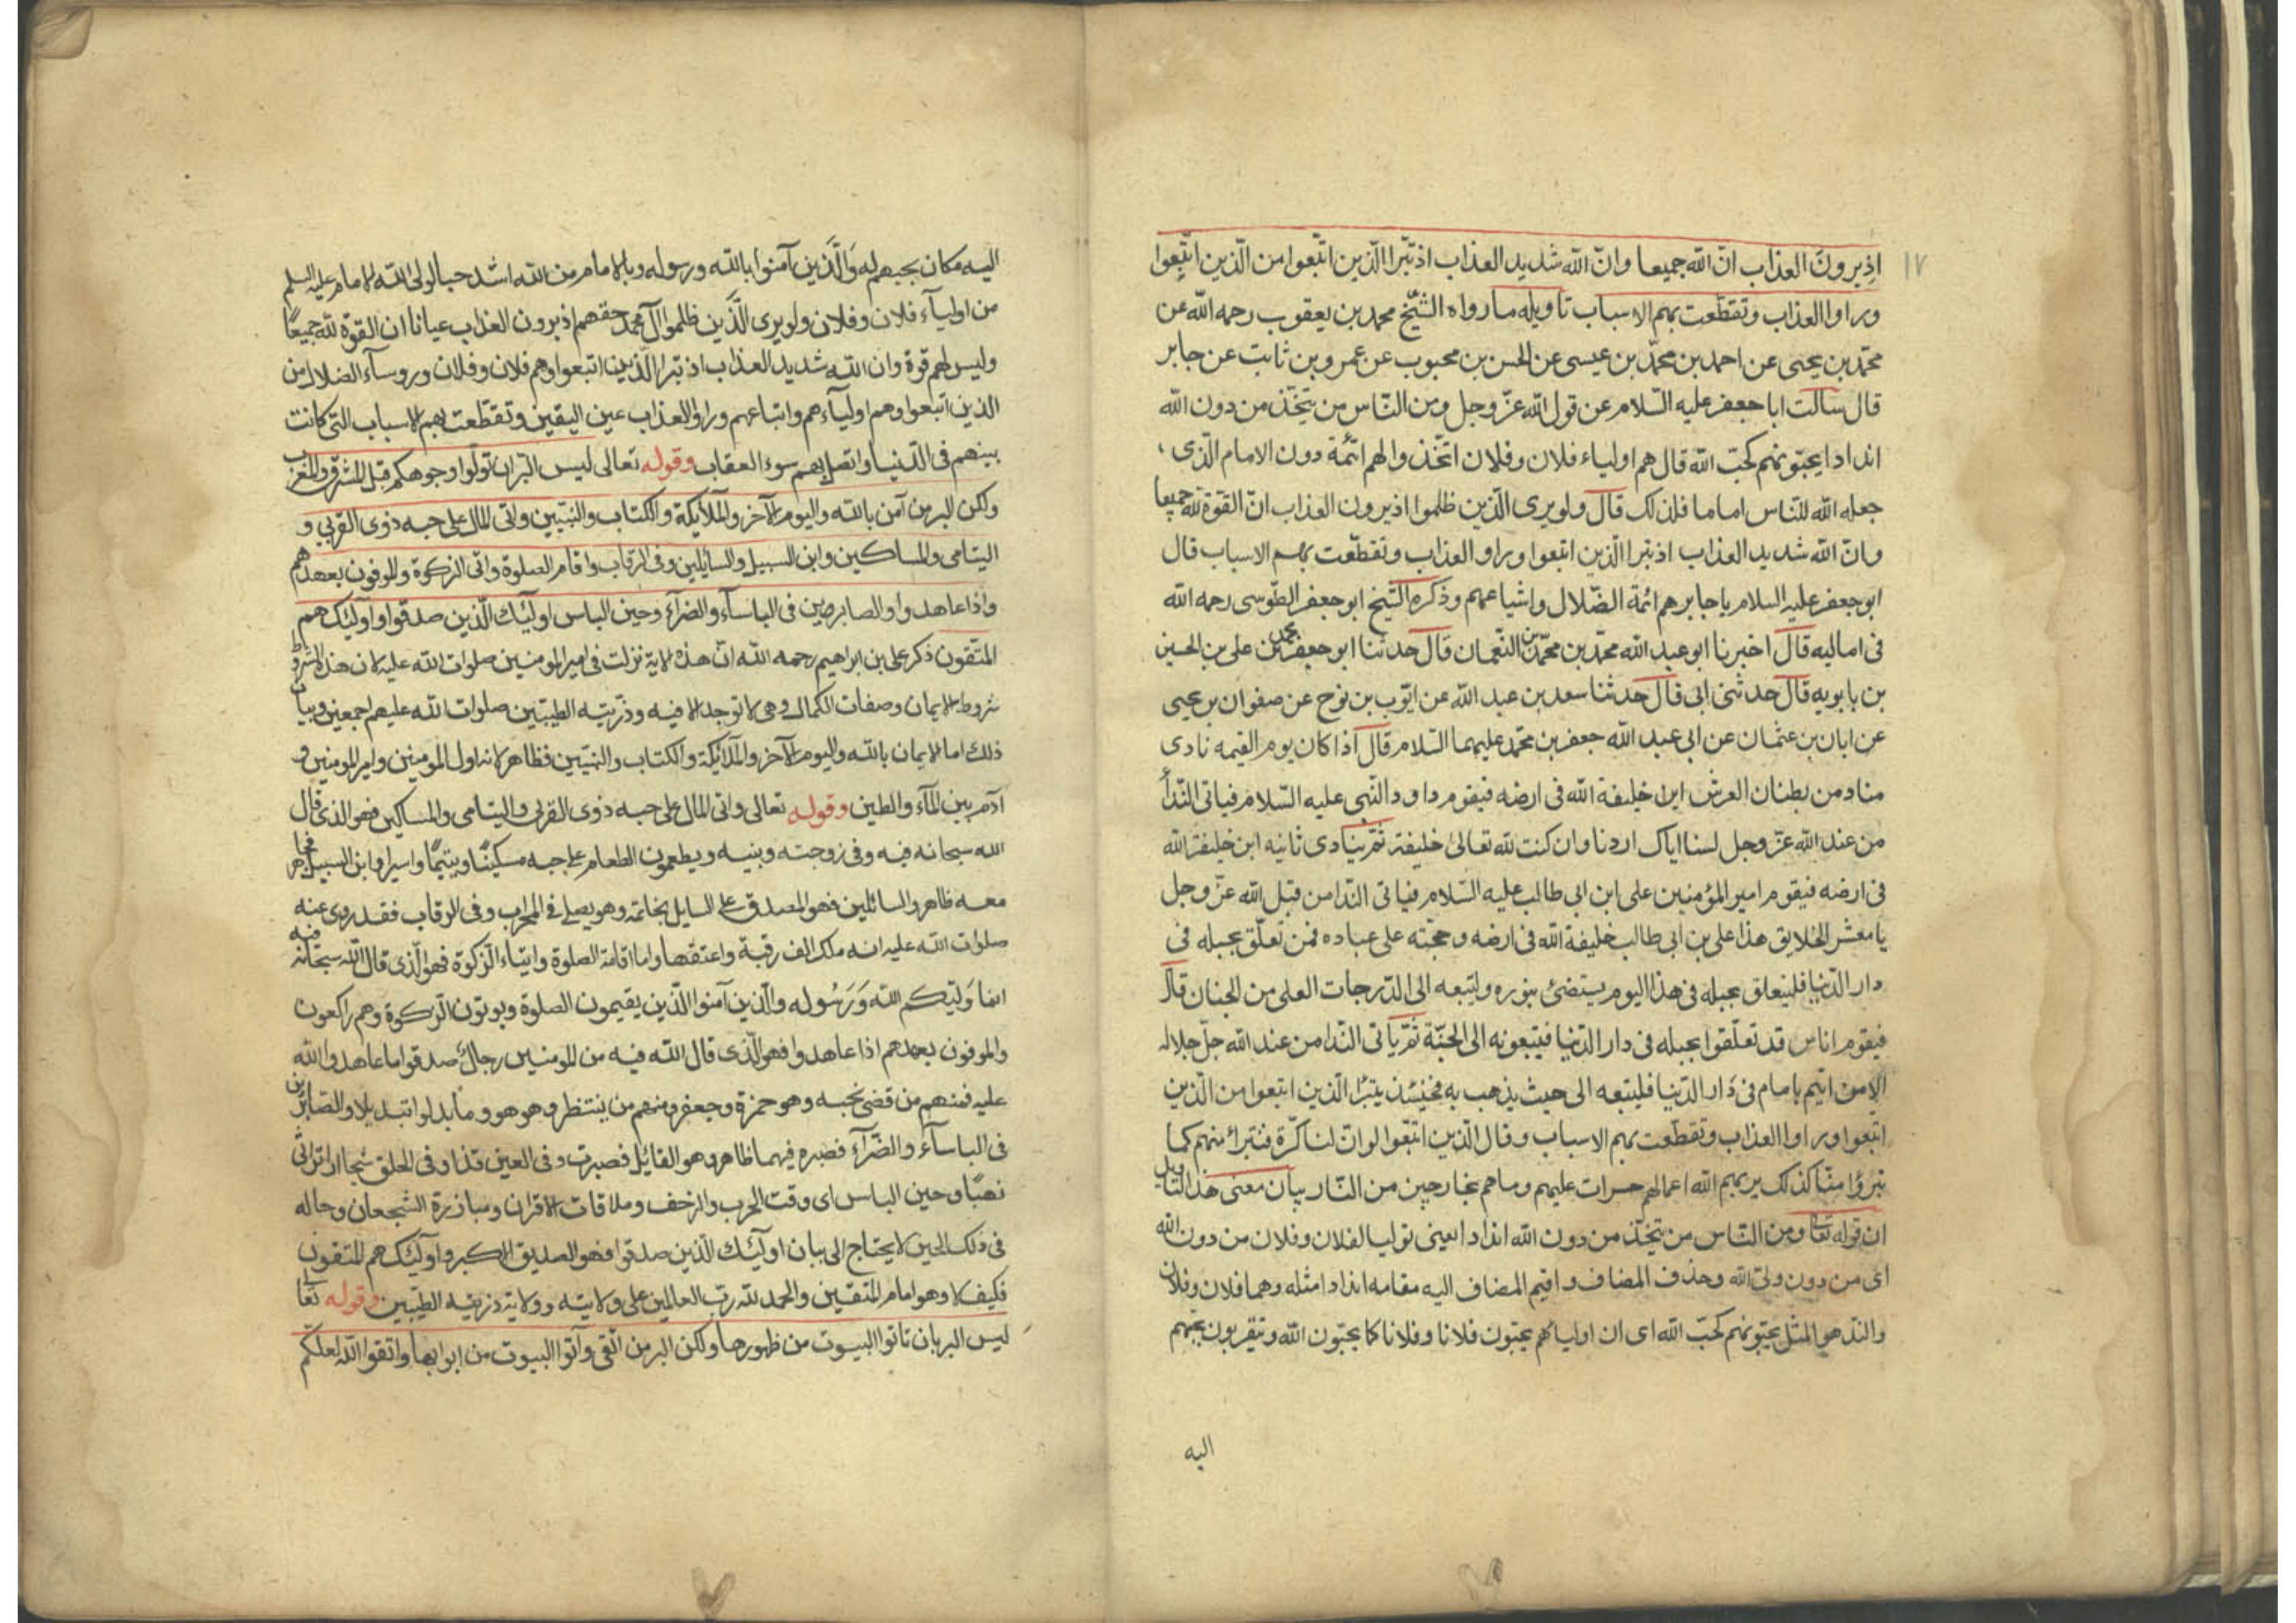 ١٧
اذيرون العذاب انّ الله جميعا وانّ الله شديد العذاب اذ تبّرا الّذين اتّبعوا من الّذين اتّبعوا
وراوا العذاب وتقطّعت بهم الاسباب تاويله ما رواه الشّيخ محمد بن يعقوب رحمه الله عن
محمّد بن يحيى عن احمد بن محمّد بن عيسى عن الحسن بن محبوب عن عمرو بن ثابت عن جابر
قال سالت ابا جعفر عليه السّلام عن قول الله عزّ وجل ومن النّاس من يتّخذ من دون الله
اندادا يحبّونهم كحبّ الله قال هم اولياء فلان وفلان اتّخذوالهم ائمّة دون الامام الّذى
جعله الله للنّاس اماما فلذلك قال ولو يرى الّذين ظلموا اذيرون العذاب انّ القوّة لله جميعا
وانّ الله شديد العذاب اذ تبرا الّذين اتبعوا وراو العذاب وتقطّعت بهم الاسباب قال
ابو جعفر عليه السلام يا جابر هم ائمة الضّلال واشياعهم وذكره الشّيخ ابو جعفر الطّوسى رحمه الله
فى اماليه قال اخبرنا ابو عبد الله محمّد بن محمّد بن النّعمان قال حدثنا ابو جعفر محمد بن على بن الحسين
بن بابويه قال حدثنى ابى قال حدثنا سعد بن عبد الله عن ايّوب بن نوح عن صفوان بن يحيى
عن ابان بن عثمان عن ابى عبد الله جعفر بن محمّد عليهما السّلام قال اذا كان يوم القيمه نادى
مناد من بطنان العرش اين خليفة الله فى ارضه فيقوم داود النّبى عليه السّلام فياتى النّدأ
من عند الله عزّ وجل لسنا اياك اردنا وان كنت لله تعالى خليفة ثمّ ينادى ثانيه اين خليفة الله
فى ارضه فيقوم امير المؤمنين على ابن ابى طالب عليه السّلام فياتى النّدا من قبل الله عزّ وجل
يا معشر الخلايق هذا على بن ابى طالب خليفة الله فى ارضه وحجّته على عباده فمن تعلّق بحبله فى
دار الدّنيا فليتعلق بحبله فى هذا اليوم يستضئ بنوره وليتبعه الى الدّرجات العلى من الجنان قال
فيقوم اناس قد تعلّقوا بحبله فى دار الدّنيا فيتبعونه الى الجنّة ثمّ ياتى النّدا من عند الله جلّ جلاله
الا من ائتم بامام فى دار الدّنيا فليتبعه الى حيث يذهب به فحينئذ يتبرّا الّذين اتبعوا من الّذين
اتبعوا وراوا العذاب وتقطّعت بهم الاسباب وقال الّذين اتّبعوا لو انّ لنا كرّة فنتبرأ منهم كما
تبرؤا منّا كذلك يريهم الله اعمالهم حسرات عليهم وماهم بخارجين من النّار بيان معنى هذا التّاويل
ان قوله تعا ومن النّاس من يتخّذ من دون الله اندادا يعنى توليا لفلان وفلان من دون الله
اى من دون ولىّ الله وحذف المضاف واقيم المضاف اليه مقامه اندادا مثله وهما فلان وفلان
والندّ هو المثل يحبّونهم كحبّ الله اى ان اولياءهم يحبّون فلانا وفلانا كما يحبّون الله وتيقربون بحبهم
اليه
اليه مكان بحبهم له وَالَّذين آمنوا بالله ورسوله وبالامام من الله اشد حبا لولى الله الامام عليه السلم
من اولياء فلان وفلان ولو يرى الَّذين ظلموا آل محمد حقهم اذيرون العذاب عيانا ان القوة لله جميعًا
وليس لهم قوة وان الله شديد العذاب اذ تبّرا الّذين اتبعوا وهم فلان وفلان وروسآء الضلال من
الذين اتبعوا وهم اولياءهم واتباعهم وراؤا العذاب عين اليقين وتقطّعت بهم الاسباب التى كانت
بينهم فى الدّنيا واتصل بهم سوء العقاب وقوله تعالى ليس البّر ان تولّوا وجوهكم قبل المشرق والمغرب
ولكن البر من آمن بالله واليوم الآخر والملآيكة والكتاب والنبيّين واتى المال على حبه ذوى القربى و
اليتامى والمساكين وابن السبيل والسآيلين وفى الرقاب واقام الصلوة واتى الزكوة والموفون بعهدهم
واذا عاهدوا والصابرين فى الباسآء والضرآء وحين الباس اوليّك الّذين صدقوا واوليّك هم
المتّقون ذكر على بن ابراهيم رحمه الله انّ هذه الاية نزلت فى امير المومنين صلوات الله عليه لان هذه الشروط
شروط الايمان وصفات الكمال وهى لا توجد الا فيه وذرّيته الطيبّين صلوات الله عليهم اجمعين وبيان
ذلك اما الايمان بالله واليوم الآخر والملآئكة والكتاب والنبيّين فظاهر لانه اول المومنين وامير المومنين و
آدم بين المآء والطين وقوله تعالى واتى المال على حبه ذوى القربى واليتامى والمساكين فهو الذى قال
الله سبحانه فيه وفى زوجته وبنيه ويطعمون الطعام على حبه مسكينًا ويتيمًا واسيرا وابن السبيل
معه ظاهر والسائلين فهو المصدق على السايل بخاتمه وهو يصلى فى المحراب وفى الرقاب فقد روى عنه
صلوات الله عليه انه ملك الف رقبة واعتقها واما اقامة الصلوة وايتاء الزكوة فهو الّذى قال اللّه سبحانه فيه
انما وَليّكم الله وَرَسُوله والّذين آمنوا الّذين يقيمون الصلوة ويوتون الزكوة وهم راكعون
والموفون بعهدهم اذا عاهدوا فهو الّذى قال الله فيه من المومنين رجالٌ صدقوا ما عاهدوا الله
عليه فمنهم من قضى نحبه وهو حمزة وجعفر ومنهم من ينتظر وهو هو وما بدلوا تبديلا والصابرين
فى الباسآء والضّرآء فصبره فيهما ظاهر وهو القائل فصبرت وفى العين قذا وفى الحلق شجا ارى تراثى
نهبًا وحين الباس اى وقت الحرب والزحف وملاقات الاقران ومبازرة الشجعان وحاله
فى ذلك الحين لا يحتاج الى بيان اوليّك الّذين صدقوا فهو الصديق الاكبر واوليّك هم المتقون
فكيف لا وهو امام المتقين والحمد لله ربّ العالمين على ولايته وولاية ذريته الطيّبين وقوله تعا
ليس البر بان تاتوا البيوت من ظهورها ولكن البر من اتّقى وآتوا البيوت من ابوابها واتقوا الله لعلكم